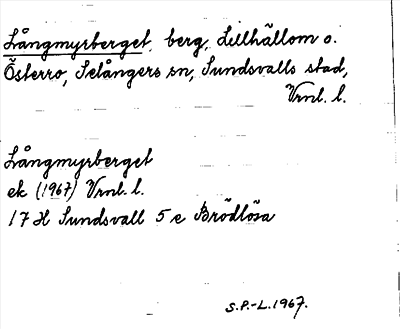 Långmyrberget, berg, Lillhällom o.
Österro, Selångers sn, Sundsvalls stad,
Vrml. l.
Långmyrberget
ek (1967) Vrml. l.
17 H Sundsvall 5 e Brödlösa
S.P.-L. 1967.